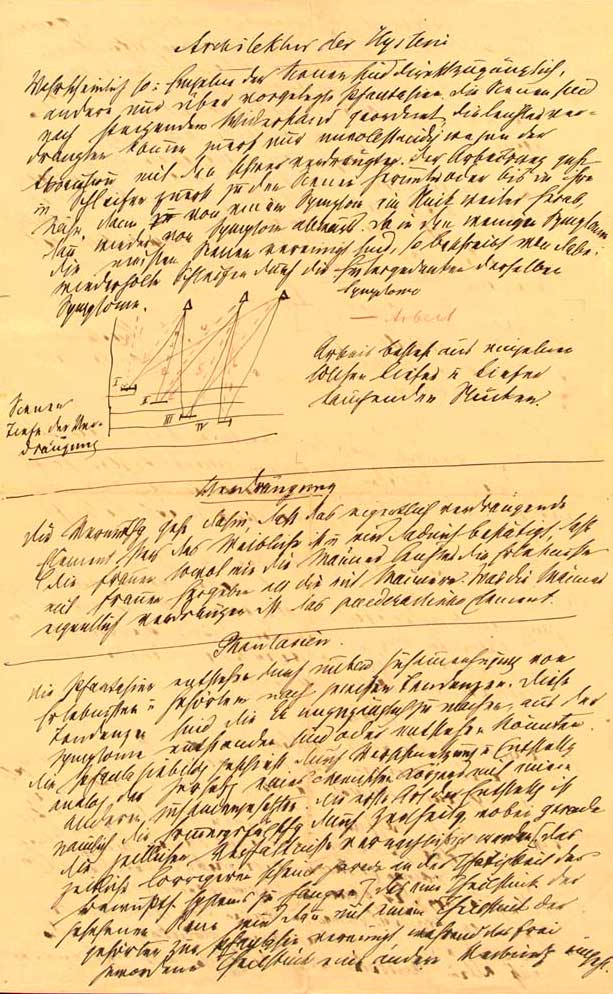 Architektur der Hysterie
Wahrscheinlich so: Einzelne der Scenen sind direkt zugänglich,
andere nur über vorgelegte Phantasien. Die Scenen sind
nach steigendem Widerstand geordnet, die leichter ver-
drängten kommen zuerst nur unvollständig wegen der
Association mit den schwer verdrängten. Der Arbeitsweg geht
in Schleifen zuerst zu den Scenen herunter oder bis in ihre
Nähe, dann von einem Symptom ein Stück weiter herab,
dann wieder vom Symptom abwärts. Da in den wenigen Symptomen
die meisten Scenen vereinigt sind, so beschreibt man dabei
wiederholte Schleifen durch die Hintergedanken derselben
Symptome.
Symptome
— Arbeit
Arbeit besteht aus einzelnen
solchen tiefer u tiefer
laufenden Stücken.
I
II
III
IV
Scenen
Tiefe der Ver-
drängung
Verdrängung
Die Vermuthg geht dahin, daß das eigentlich verdrängende
Element stets das Weibliche ist u wird dadurch bestätigt, daß
die Frauen sowol wie die Männer leichter die Erlebnisse
mit Frauen hergeben als die mit Männern. Was die Männer
eigentlich verdrängen ist das paederastische Element.
Phantasien.
Die Phantasien entstehen durch unbew Zusammenfügung von
Erlebnissen u Gehörtem nach gewissen Tendenzen. Diese
Tendenzen sind die Er unzugänglich zu machen, aus der
Symptome entstanden sind oder entstehen könnten.
Die Phantasiebildg geschieht durch Verschmelzung u Entstellg
analog der Zersetzg eines chemischen Körpers mit einem
anderen zusammengesetzten. Die erste Art der Entstellg ist
nämlich die Erinnergsfälschg durch Zertheilg, wobei gerade
die zeitlichen Verhältnisse vernachlässigt werden. Das
zeitliche Corrigieren scheint gerade an der Thätigkeit des
Bewußtss Systems zu hängen. Das eine Theilstück der
gesehenen Scene wird dann mit einem Theilstück der
gehörten zur Phantasie vereinigt während das frei
gewordene Theilstück eine andere Verbindg eingeht.